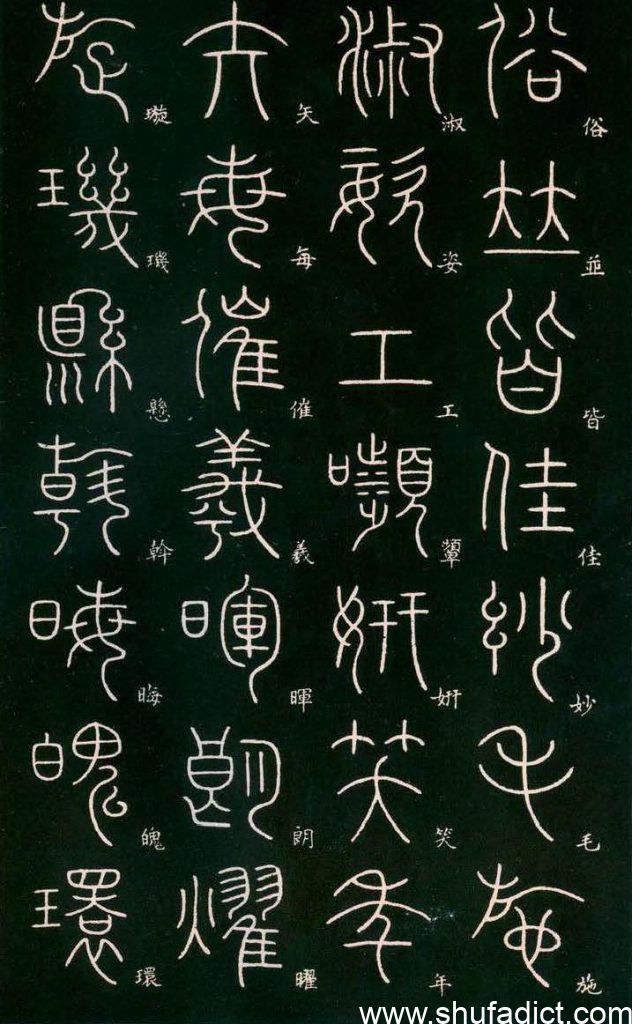 俗並皆佳妙毛施
淑姿工顰姸笑年
矢每催羲暉朗曜
璇璣懸斡晦魄環
www.shufadict.com